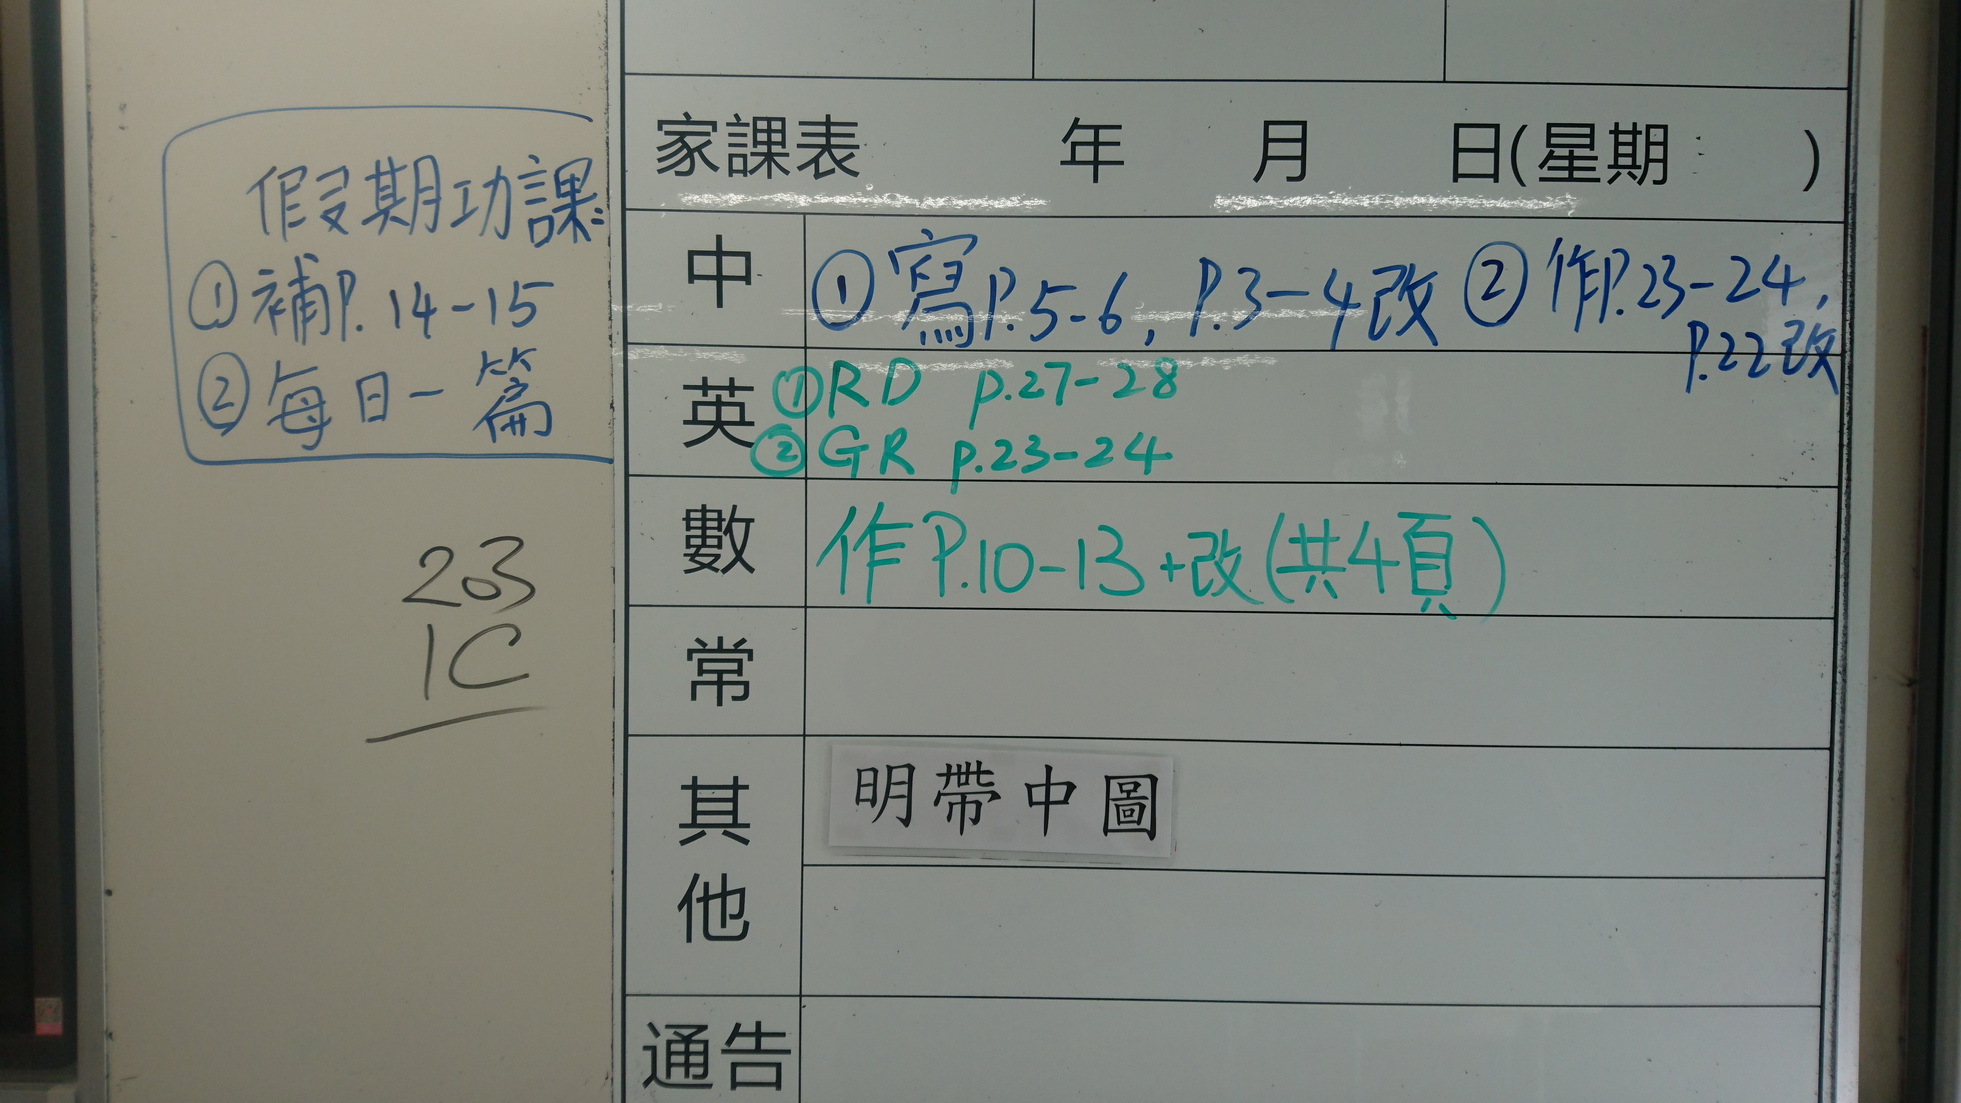 假期功課:
① 補P. 14-15
② 每日一篇
203
1C
家課表 年 月 日(星期 )
中 ① 寫P.5-6, P.3-4改 ② 作P.23-24,
P.22改
英 ① RD p.27-28
② GR p.23-24
數 作P.10-13+改(共4頁)
常
其他 明帶中圖
通告